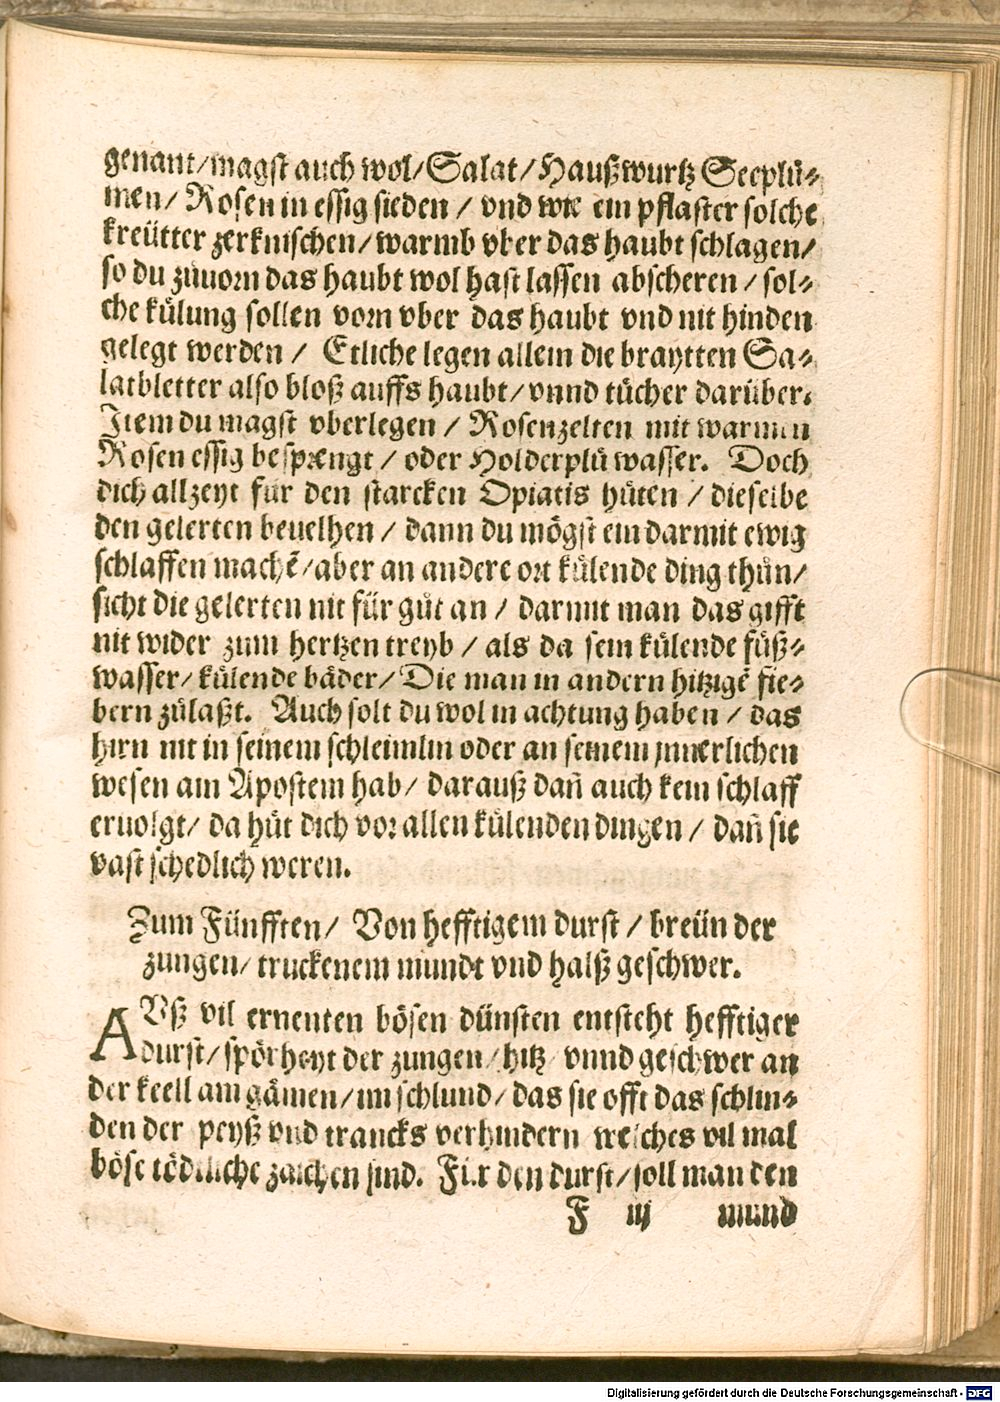 genant/magst auch wol/Salat/Haußwurtz Seeplů-
men/ Rosen in essig sieden / vnd wie ein pflaster solche
kreütter zerknischen/warmb vber das haubt schlagen/
so du zůuorn das haubt wol hast lassen abscheren / sol-
che kůlung sollen vorn vber das haubt vnd nit hinden
gelegt werden / Etliche legen allein die braytten Sa-
latbletter also bloß auffs haubt/vnnd tücher darüber.
Item du magst vberlegen / Rosenzelten mit warmen
Rosen essig besprengt / oder Holderplů wasser. Doch
dich allzeyt für den starcken Opiatis hüten / dieselbe
den gelerten beuelhen / dann du mögst ein darmit ewig
schlaffen machẽ/aber an andere ort kůlende ding thůn/
sicht die gelerten nit für gůt an / darmit man das gifft
nit wider zum hertzen treyb / als da sein kůlende füß-
wasser/ kůlende båder/ Die man in andern hitzigẽ fie-
bern zůlaßt. Auch solt du wol in achtung haben / das
hirn nit in seinem schleimlin oder an seinem jnnerlichen
wesen am Apostem hab/ darauß dañ auch kein schlaff
eruolgt/ da hůt dich vor allen kůlenden dingen / dañ sie
vast schedlich weren.
Zum Fünfften/ Von hefftigem durst / breün der
zungen/ truckenem mundt vnd halß geschwer.
AVß vil ernenten bösen dünsten entsteht hefftiger
durst/ spörheyt der zungen/ hitz vnnd geschwer an
der keell am gåmen/im schlund/ das sie offt das schlin-
den der peyß vnd trancks verhindern welches vil mal
böse tödtliche zaichen sind. Für den durst/soll man den
F iij mund
Digitalisierung gefördert durch die Deutsche Forschungsgemeinschaft - DFG